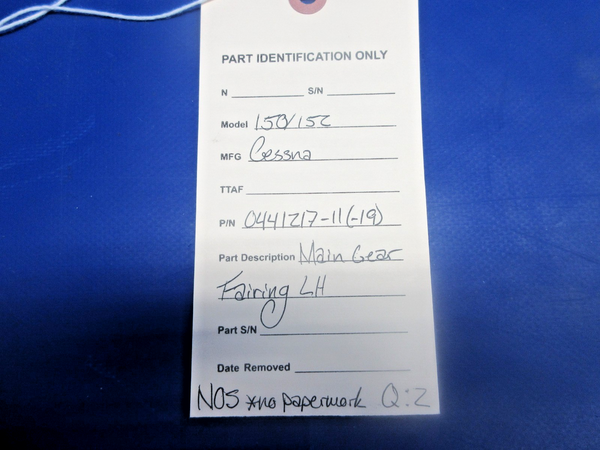 PART IDENTIFICATION ONLY
N S/N
Model 150/152
MFG Cessna
TTAF
P/N 0441217-11(-19)
Part Description Main Gear
Fairing LH
Part S/N
Date Removed
NOS *no paperwork Q:2